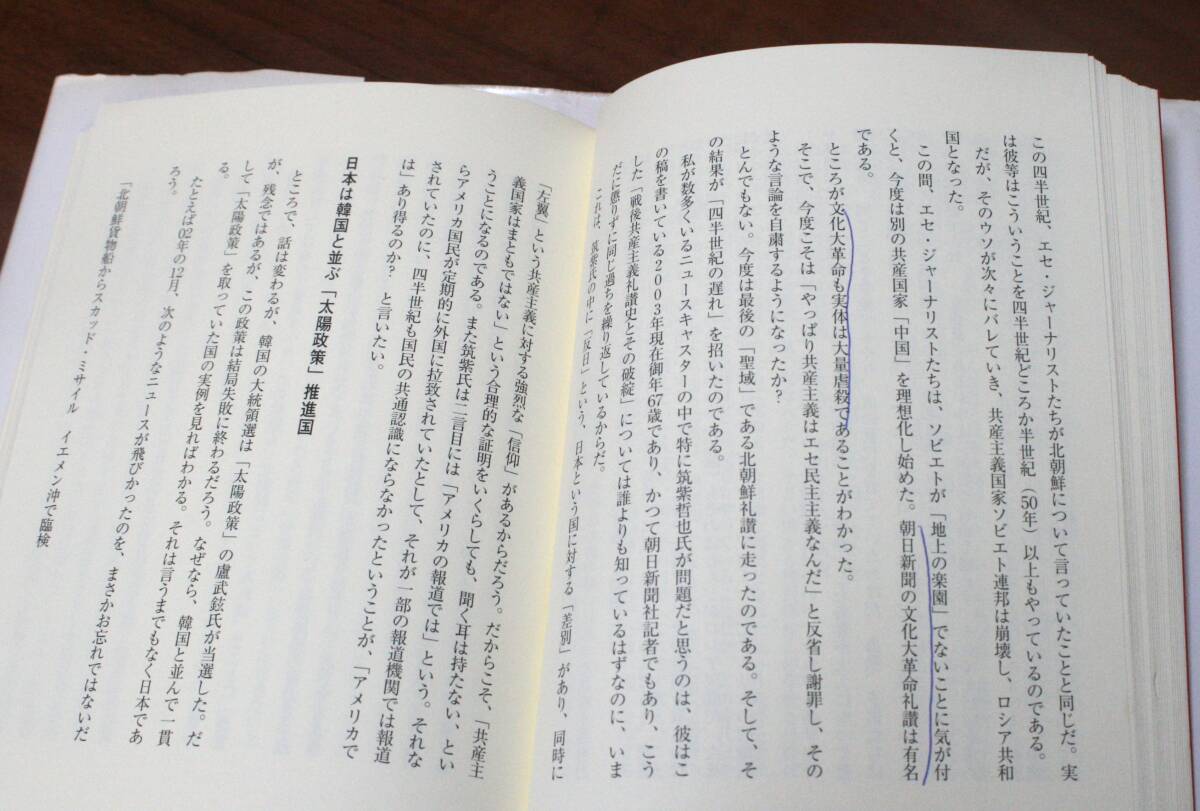 この四半世紀、エセ・ジャーナリストたちが北朝鮮について言っていたことと同じだ。実
は彼等はこういうことを四半世紀どころか半世紀（50年）以上もやっているのである。
だが、そのウソが次々にバレていき、共産主義国家ソビエト連邦は崩壊し、ロシア共和
国となった。
この間、エセ・ジャーナリストたちは、ソビエトが「地上の楽園」でないことに気が付
くと、今度は別の共産国家「中国」を理想化し始めた。朝日新聞の文化大革命礼讃は有名
である。
ところが文化大革命も実体は大量虐殺であることがわかった。
そこで、今度こそは「やっぱり共産主義はエセ民主主義なんだ」と反省し謝罪し、その
ような言論を自粛するようになったか？
とんでもない。今度は最後の「聖域」である北朝鮮礼讃に走ったのである。そして、そ
の結果が「四半世紀の遅れ」を招いたのである。
私が数多くいるニュースキャスターの中で特に筑紫哲也氏が問題だと思うのは、彼はこ
の稿を書いている2003年現在御年67歳であり、かつて朝日新聞社記者でもあり、こう
した「戦後共産主義礼讃史とその破綻」については誰よりも知っているはずなのに、いま
だに懲りずに同じ過ちを繰り返しているからだ。
これは、筑紫氏の中に「反日」という、日本という国に対する「差別」があり、同時に
「左翼」という共産主義に対する強烈な「信仰」があるからだろう。だからこそ、「共産主
義国家はまともではない」という合理的な証明をいくらしても、聞く耳は持たない、とい
うことになるのである。また筑紫氏は二言目には「アメリカの報道では」という。それな
らアメリカ国民が定期的に外国に拉致されていたとして、それが一部の報道機関では報道
されていたのに、四半世紀も国民の共通認識にならなかったということが、「アメリカで
は」あり得るのか？　と言いたい。
日本は韓国と並ぶ「太陽政策」推進国
ところで、話は変わるが、韓国の大統領選は「太陽政策」の盧武鉉氏が当選した。だ
が、残念ではあるが、この政策は結局失敗に終わるだろう。なぜなら、韓国と並んで一貫
して「太陽政策」を取っていた国の実例を見ればわかる。それは言うまでもなく日本であ
る。
たとえば02年の12月、次のようなニュースが飛びかったのを、まさかお忘れではないだ
ろう。
「北朝鮮貨物船からスカッド・ミサイル　イエメン沖で臨検